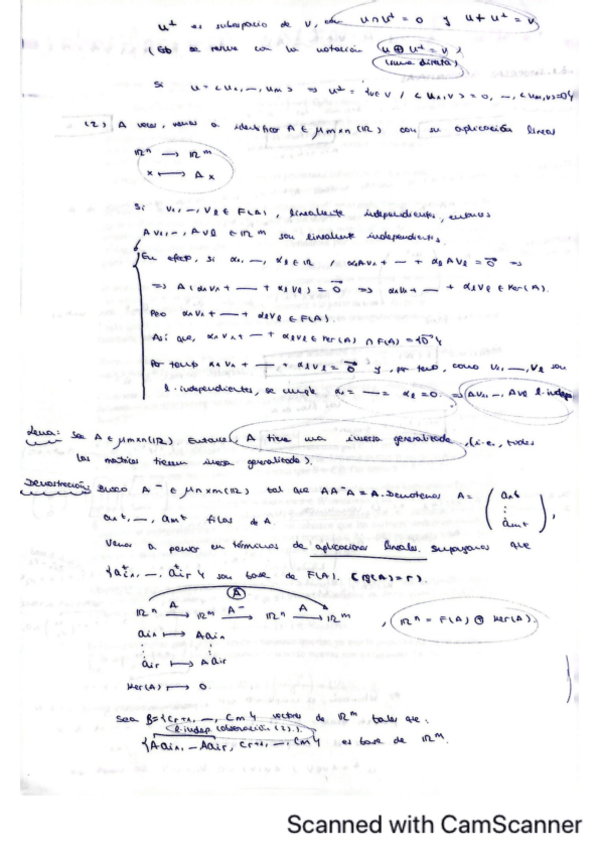 U⊥ es subespacio de V, con U∩U⊥ = 0 y U+U⊥ = V
(Esto se resume con la notación U⊕U⊥ = V)
(suma directa)
Si U = <u1, —, um> ⇒ U⊥ = {v∈V / <u1,v> = 0, —, <um,v>=0}
(2) A veces, vamos a identificar A ∈ Mmxn(ℝ) con su aplicación lineal
ℝⁿ → ℝᵐ
x ↦ Ax
Si v1, —, vl ∈ F(A), linealmente independientes, entonces
Av1, —, Avl ∈ ℝᵐ son linealmente independientes.
En efecto, si α1, —, αl ∈ ℝ / α1Av1 + — + αlAvl = 0⃗ ⇒
⇒ A(α1v1 + — + αlvl) = 0⃗ ⇒ α1v1 + — + αlvl ∈ Ker(A).
Pero α1v1 + — + αlvl ∈ F(A).
Así que, α1v1 + — + αlvl ∈ Ker(A) ∩ F(A) = {0⃗}
Por tanto α1v1 + — + αlvl = 0⃗ y, por tanto, como v1, —, vl son
l. independientes, se cumple α1 = — = αl = 0. ⇒ Av1, —, Avl l. indep
Lema: Sea A ∈ Mmxn(ℝ). Entonces A tiene una inversa generalizada, (i.e., todas
las matrices tienen inversa generalizada).
Demostración: Busco A⁻ ∈ Mnxm(ℝ) tal que AA⁻A = A. Denotemos A = (a1t ⋮ amt),
a1t, —, amt filas de A.
Vamos a pensar en términos de aplicaciones lineales. Supongamos que
{ai1, —, air} son base de F(A). (rg(A) = r).
A
ℝⁿ →A ℝᵐ →A⁻ ℝⁿ →A ℝᵐ , ℝⁿ = F(A) ⊕ Ker(A).
ai1 ↦ Aai1
⋮ ⋮
air ↦ Aair
Ker(A) ↦ 0
Sea B = {cr+1, —, cm} vectores de ℝᵐ tales que:
l. indep (observación (2)).
{Aai1, — Aair, cr+1, —, cm} es base de ℝᵐ.
Scanned with CamScanner